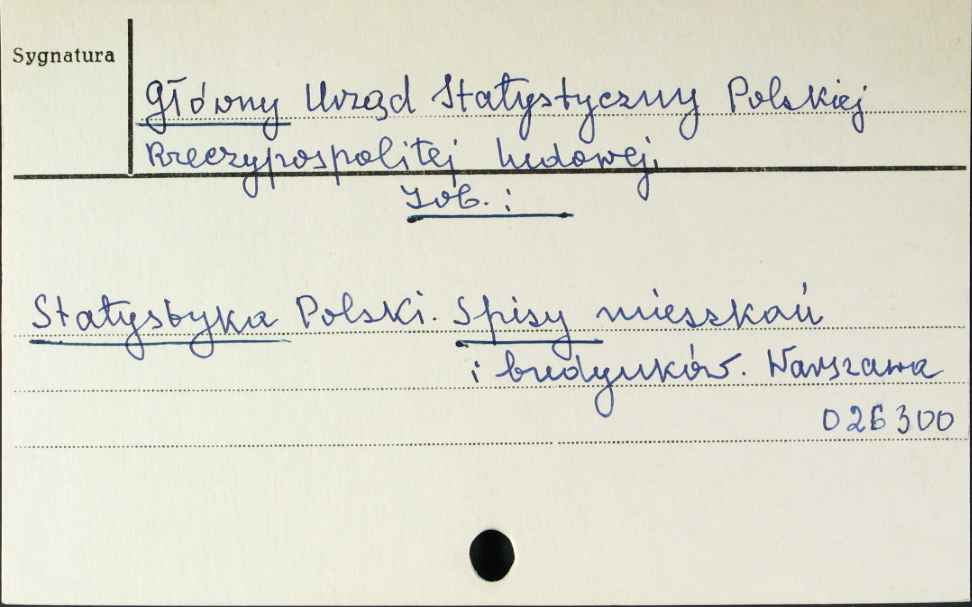 Sygnatura
Główny Urząd Statystyczny Polskiej
Rzeczypospolitej Ludowej.
Zob. :
Statystyka Polski. Spisy mieszkań
i budynków. Warszawa
026300